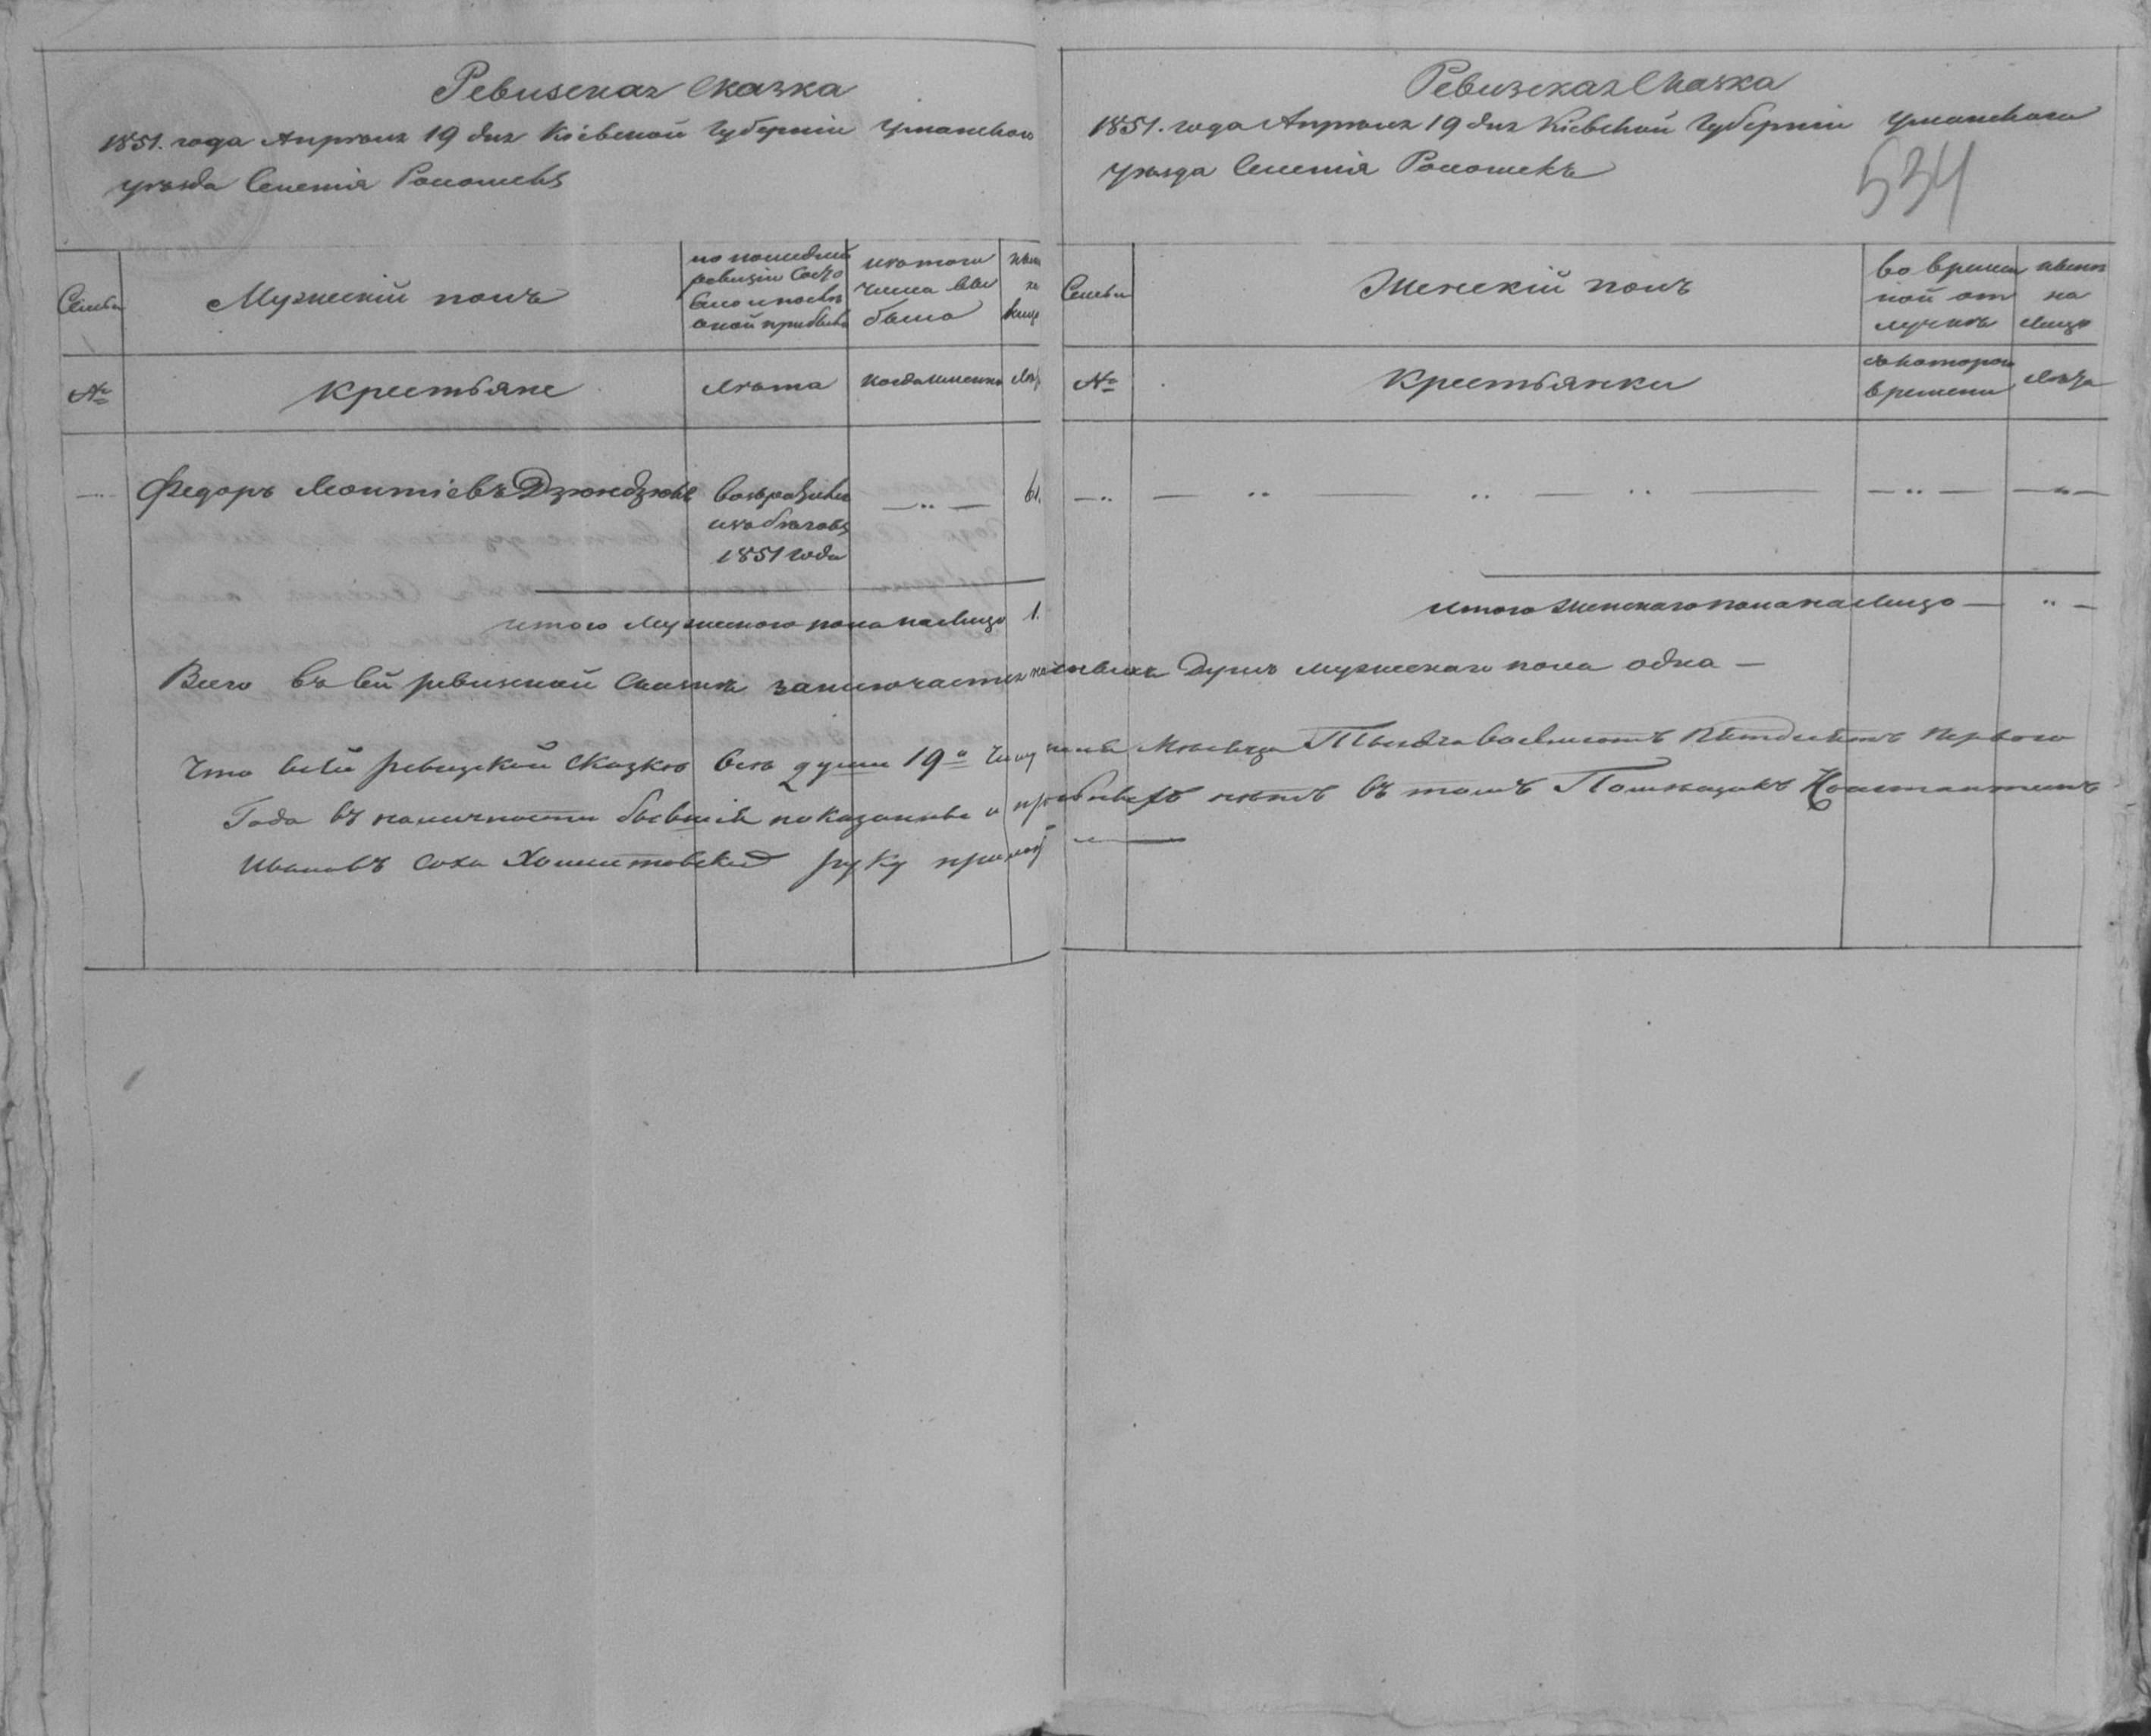 Ревизская Сказка
1851. года Апрѣля 19 дня Кіевской Губерніи Уманского
уѣзда Селенія Ропотехъ
Семьи
Мужескій полъ
по последней
ревизіи состо
яло и послѣ
оной прибыло
изъ того
числа вы
было
нынѣ
на
лицо
№
Крестьяне
Лѣта
когда именно
Лѣт
Федоръ Леонтіевъ Дзюндзюкъ
возвратился
изъ бѣговъ
1851 года
61.
итого Мужеского пола на Лицо 1.
Ревизская Сказка
1851. года Апрѣля 19 дня Кіевской Губерніи Уманского
уѣзда Селенія Ропотехъ
534
Семьи
Женскій полъ
во времен
ной от
лучкѣ
нынѣ
на
лицо
№
Крестьянки
съ которого
времени
Лѣта
итого Женскаго пола на Лицо
Всего въ сей ревизской Сказкѣ заключается наличныхъ Душъ мужескаго пола одна
Что въ сей ревизской Сказкѣ всѣ души 19го Числа Мѣсяца Тысяча восемсотъ пятдесятъ первого
Года въ наличности бывшія показаны и прописныхъ нѣтъ въ томъ Помѣщикъ Константинъ
Ивановъ руку прилож